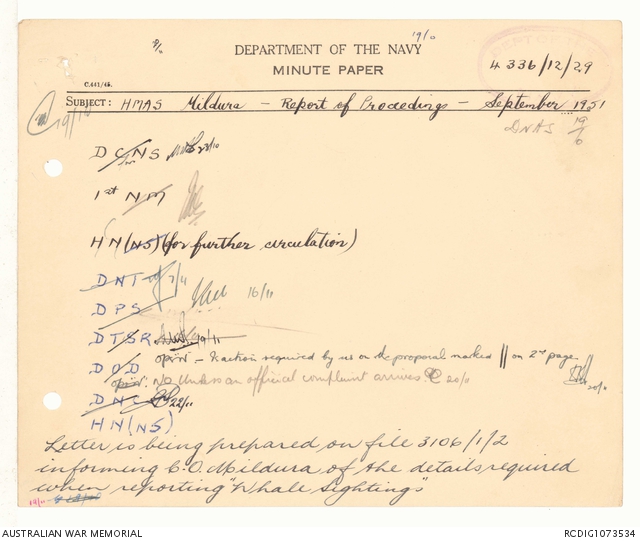 9/10
19/10
DEPARTMENT OF THE NAVY
MINUTE PAPER
4336/12/29
C.441/48.
SUBJECT: HMAS Mildura - Report of Proceedings - September 1951
DNAS 19/10
DCNS 23/10
1st NM
HN(NS) (for further circulation)
DNT 7/11
DPS 16/11
DTSR 19/11
DOD
OPI/DW - Is action required by us on the proposal marked || on 2nd page.
No unless an official complaint arrives 20/11
20/11
DNC 22/11
HN(NS)
Letter is being prepared on file 3106/1/2
informing C.O. Mildura of the details required
when reporting "Whale Sightings"
AUSTRALIAN WAR MEMORIAL
RCDIG1073534